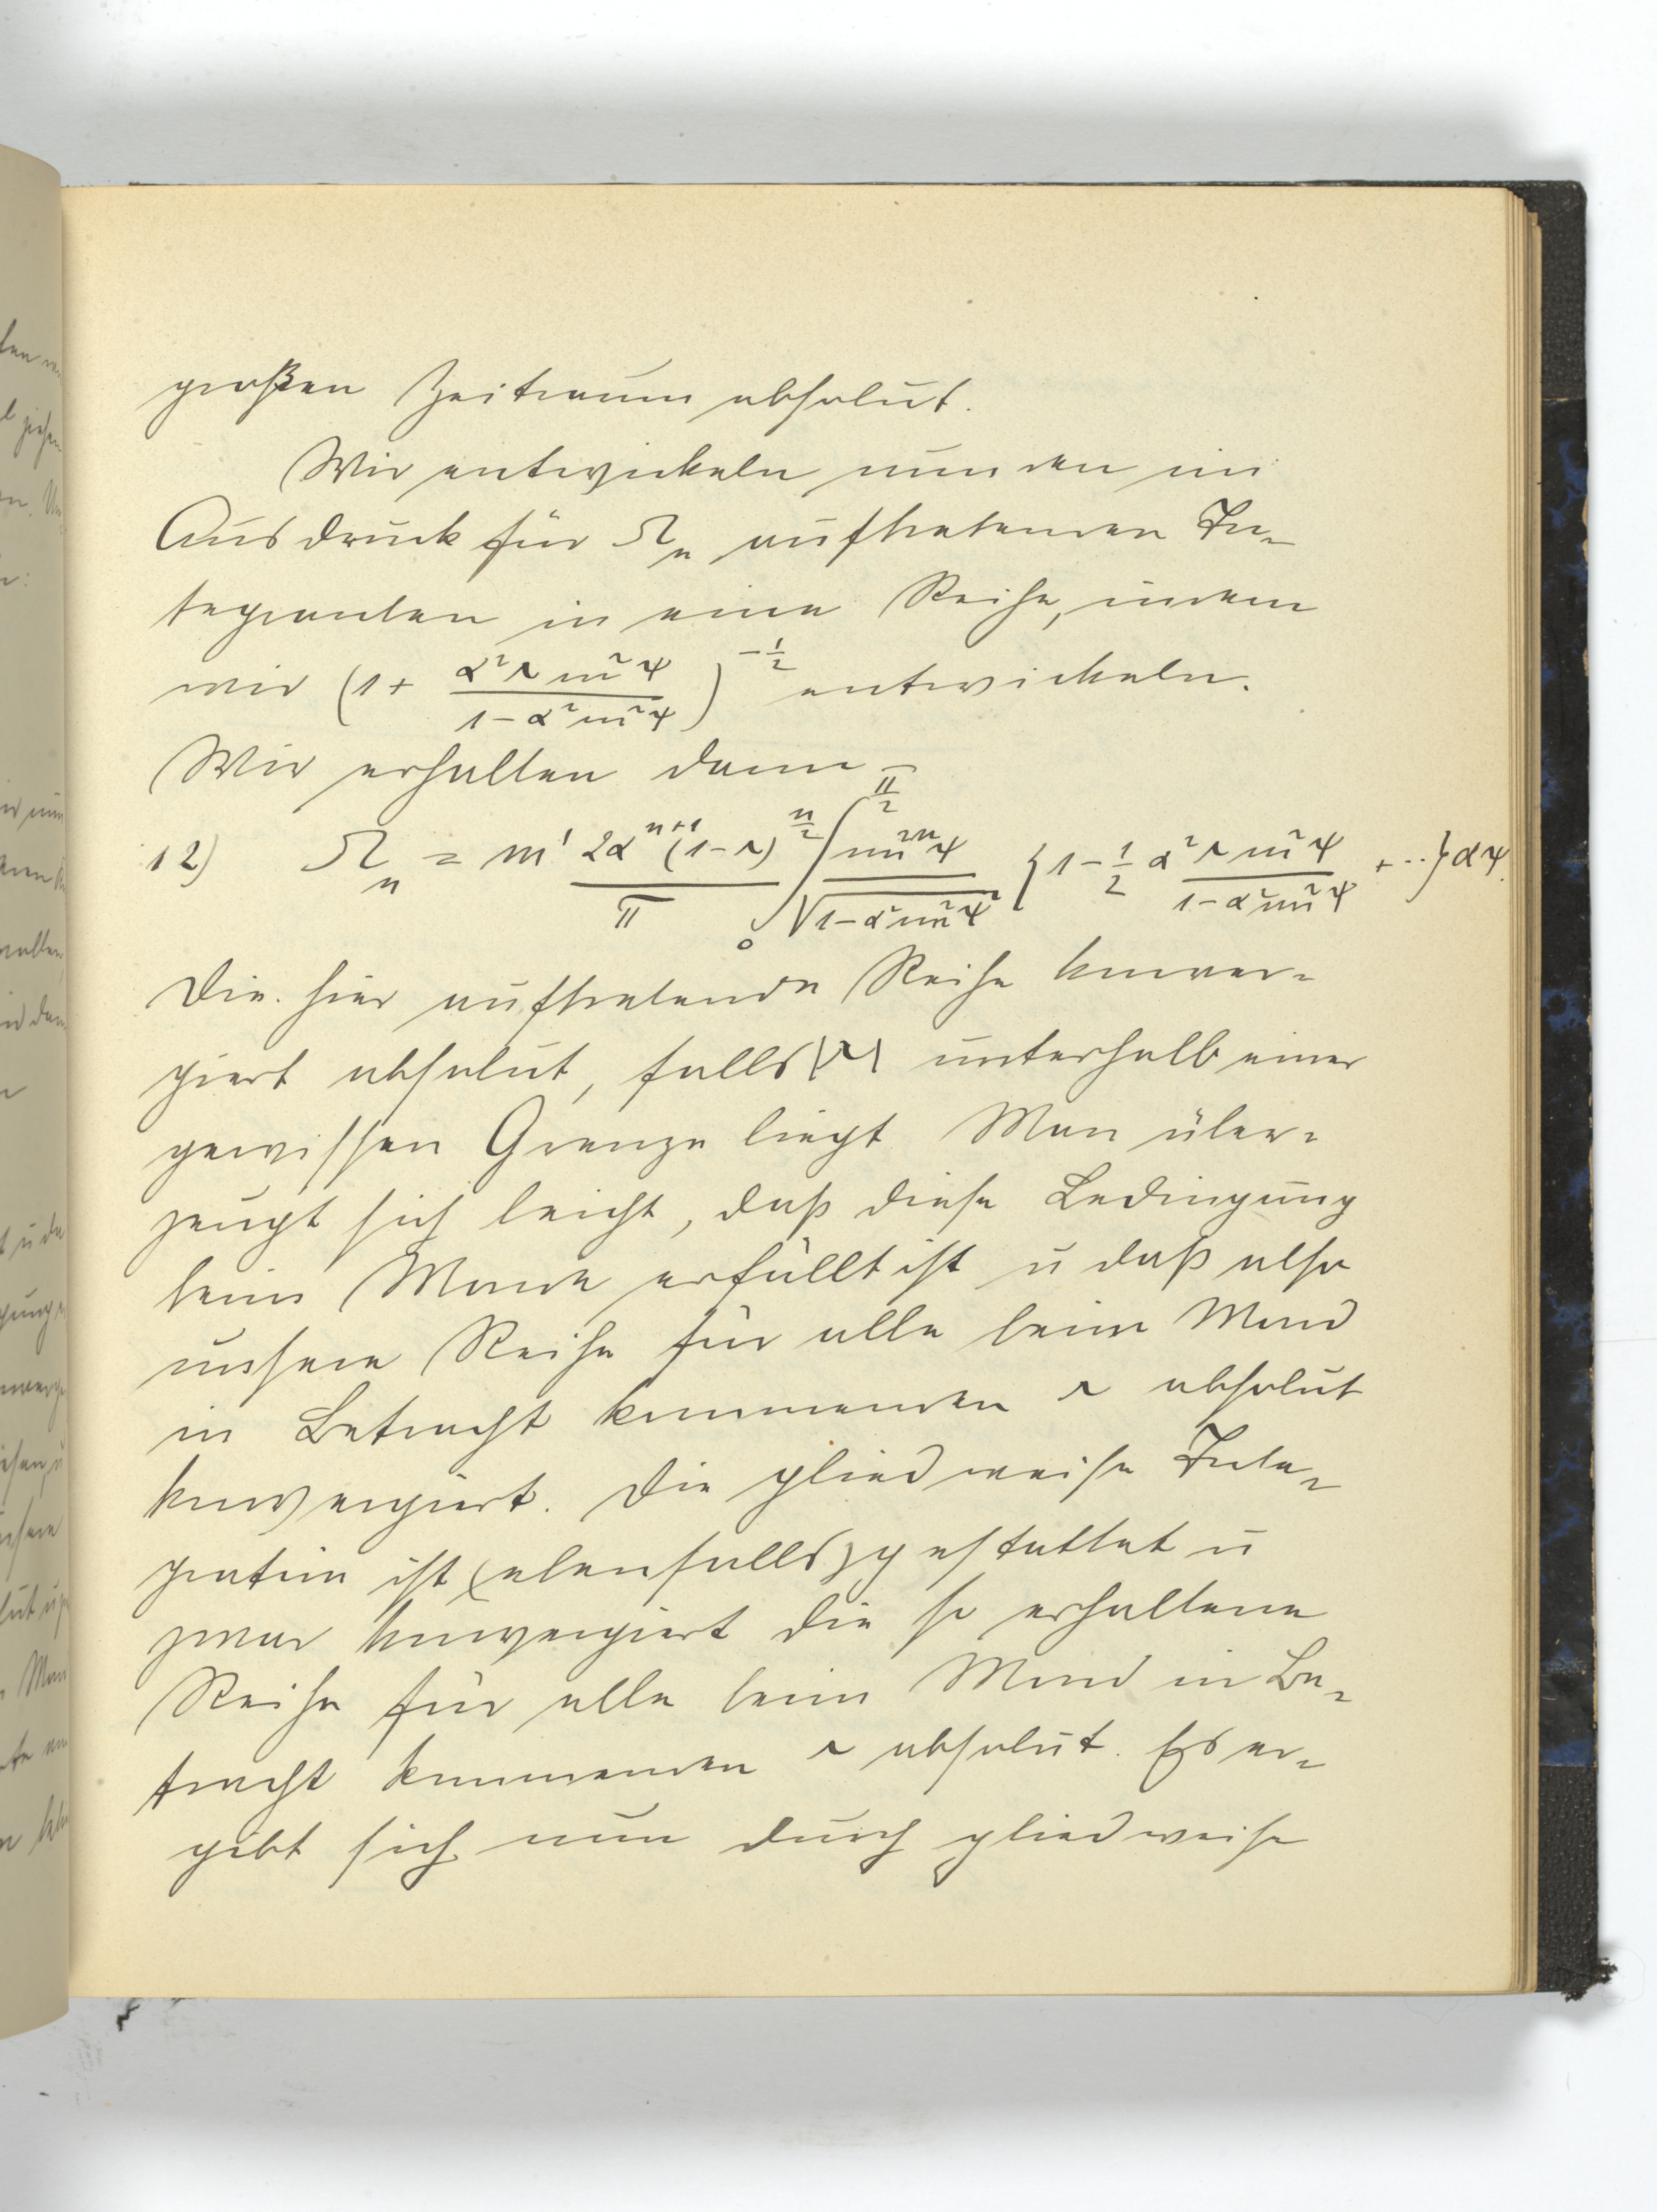 großen Zeitraum absolut.
Wir entwickeln nun den im
Ausdruck für Ω_n auftretenden In-
tegranden in eine Reihe, indem
wir (1 + α²r sin²ψ / 1 - α² sin²ψ)^(-1/2) entwickeln.
Wir erhalten dann
12) Ω_n = m' 2α^(n+1) (1-r)^(n/2) / π ∫_0^(π/2) sin^(2n)ψ / √(1-α² sin²ψ) {1 - 1/2 α² r sin²ψ / 1-α² sin²ψ + ..} dψ.
Die hier auftretende Reihe konver-
giert absolut, falls |r| unterhalb einer
gewissen Grenze liegt Man über-
zeugt sich leicht, daß diese Bedingung
beim Monde erfüllt ist u daß also
unsere Reihe für alle beim Mond
in Betracht kommenden r absolut
konvergiert. Die gliedweise Inte-
gration ist (ebenfalls) gestattet u
zwar konvergiert die so erhaltene
Reihe für alle beim Mond in Be-
tracht kommenden r absolut. Es er-
gibt sich nun durch gliedweise